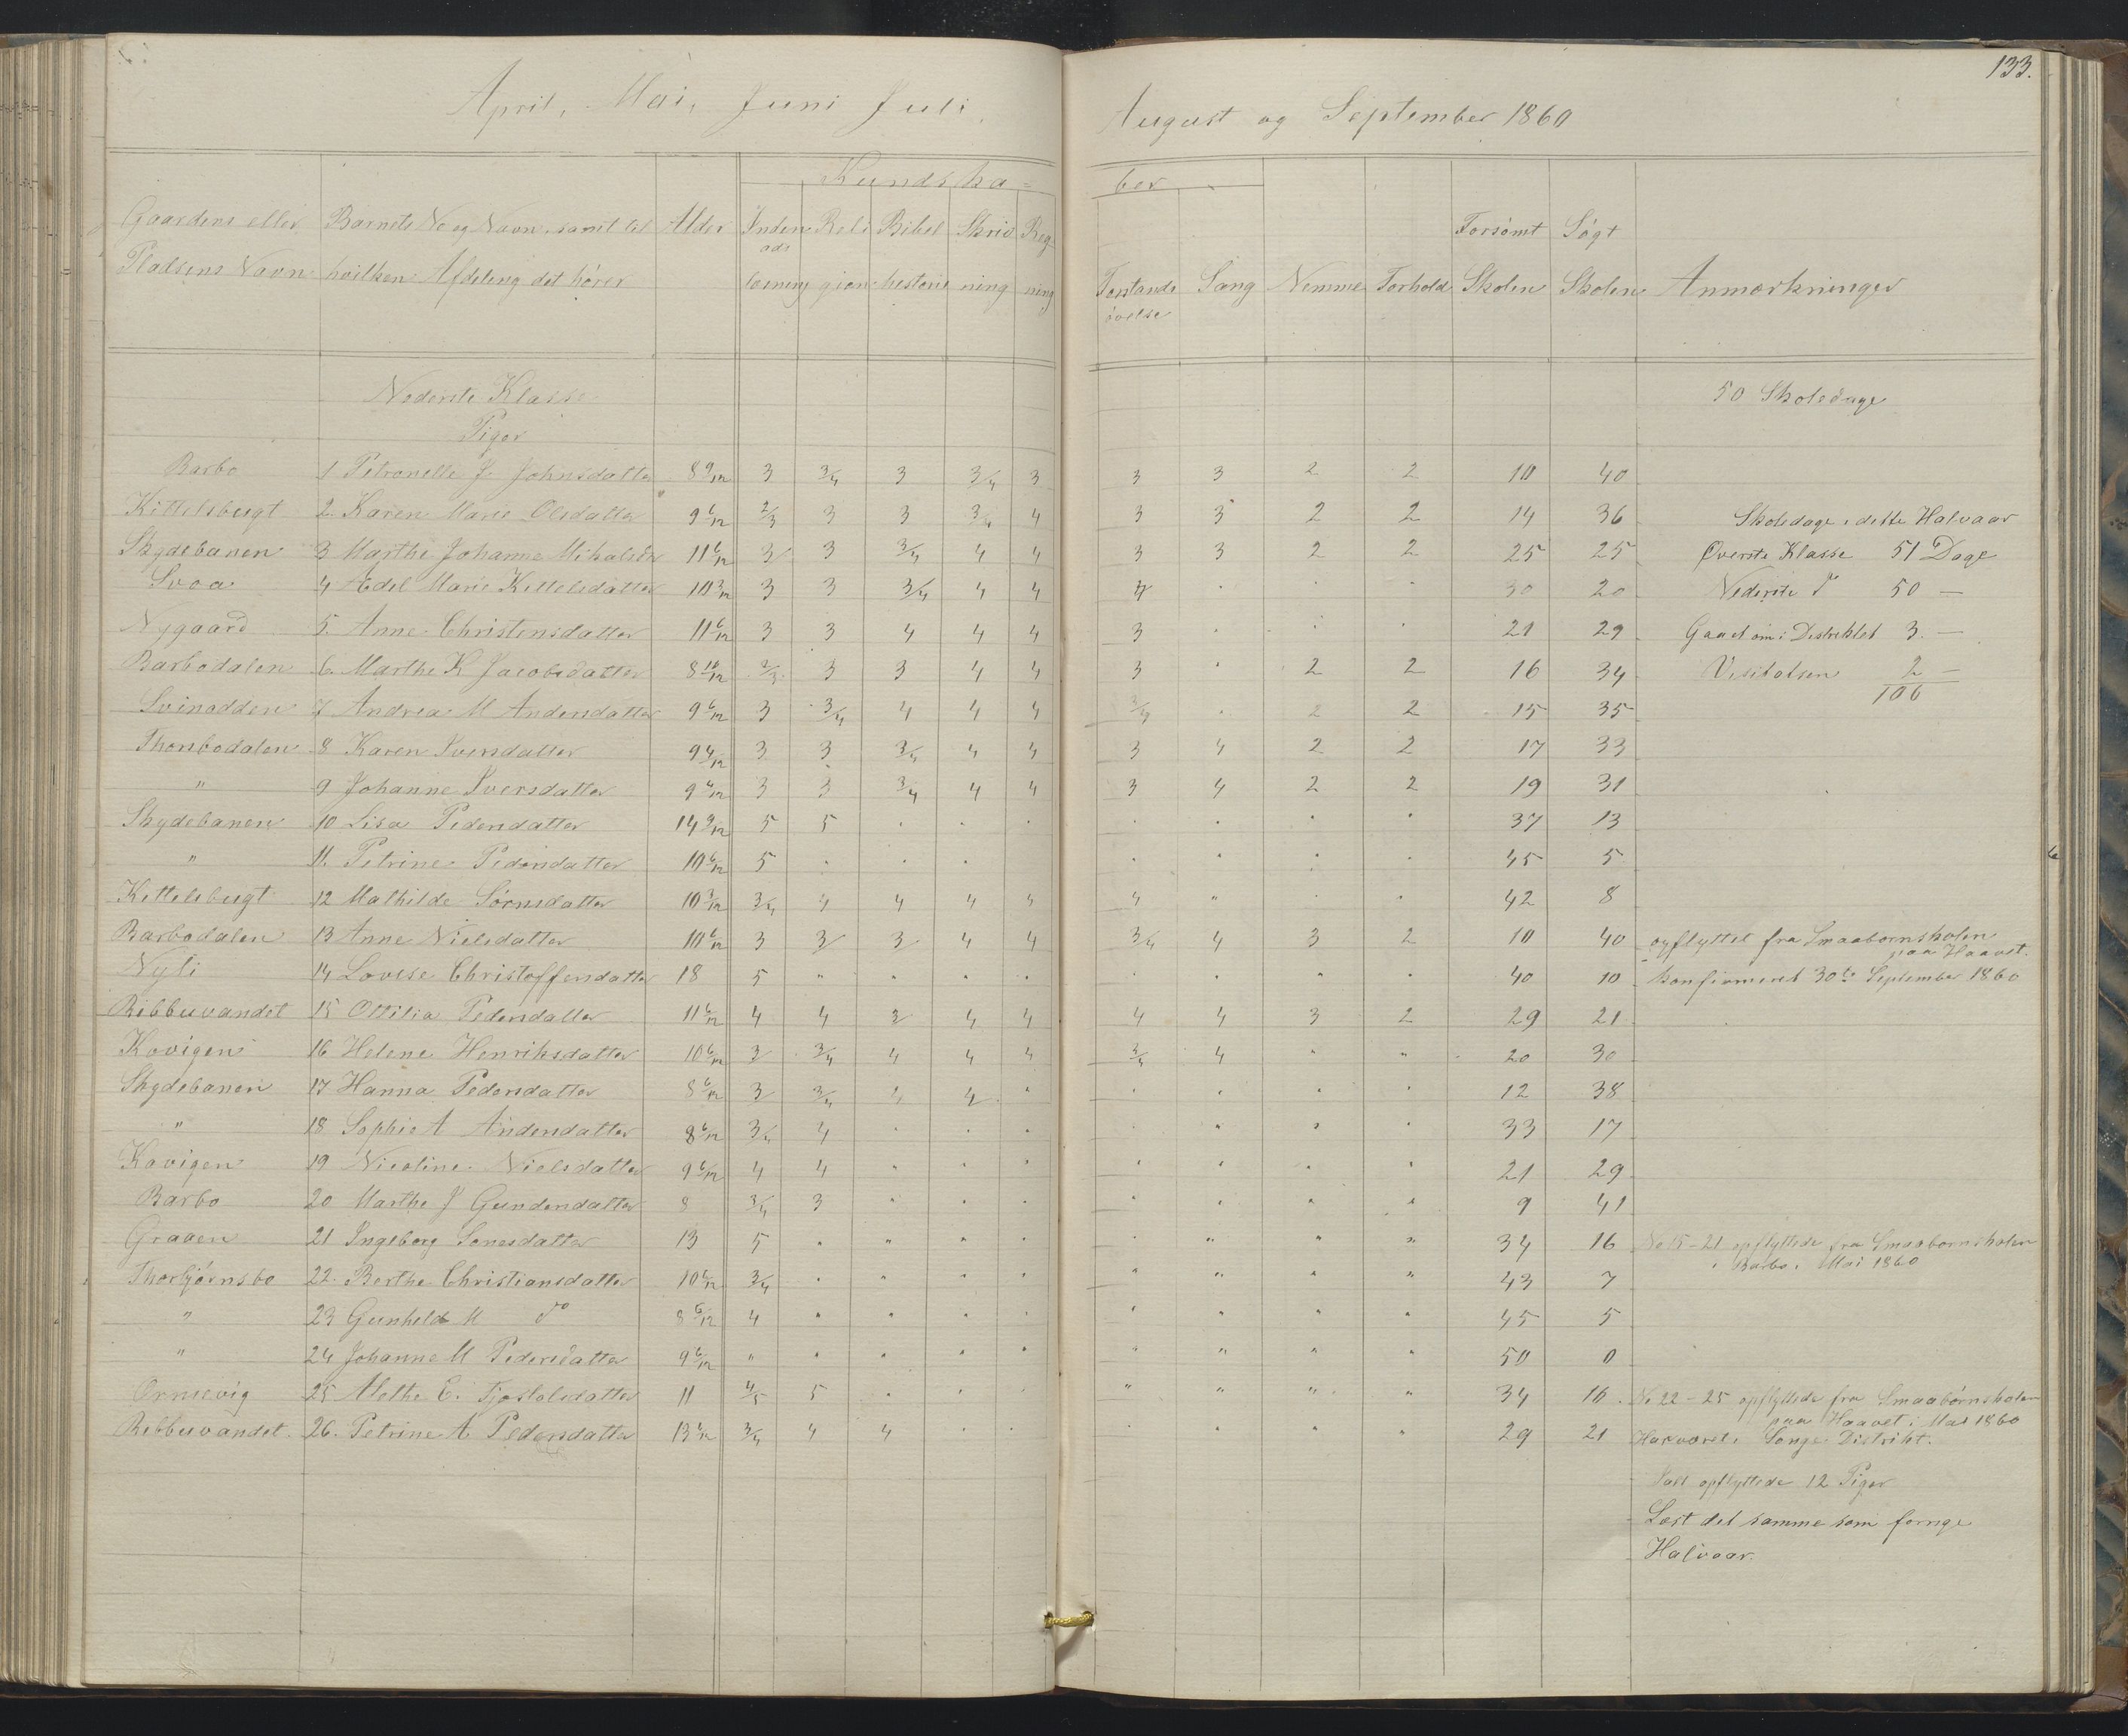 133.
April, Mai, Juni Juli,
August og September 1860
Kundska=
ber
Gaardens eller Barnets No og Navn, samt til Alder Inden Reli Bibel Skriv Reg=
ads
Forsömt Sögt
Pladsens Navn hvilken Afdeling det hører læsning gion historie ning ning
Forstands Sang Nemme Forhold Skolen Skolen Anmærkninger
övelse
Nederste Klasse 50 Skoledage
Piger
Barbo 1 Petronelle J. Johnsdatter 8 9/12 3 3/4 3 3/4 3 3 3 2 2 10 40
Kittelsbugt 2. Karen Marie Olsdatter 9 6/12 2/3 3 3 3/4 4 3 3 2 2 14 36 Skoledage i dette Halvaar
Skydebanen 3 Marthe Johanne Mikalsdr 11 6/12 3 3 3/4 4 4 3 3 2 2 25 25 Överste Klasse 51 Dage
Svoa 4 Adel Marie Kittelsdatter 10 3/12 3 3 3/4 4 4 4 " " " 30 20 Nederste do 50 —
Nygaard 5. Anne Christensdatter 11 6/12 3 3 4 4 4 3 " " " 21 29 Gaaet om i Distriktet 3. —
Barbodalen 6. Marthe K Jacobsdatter 8 10/12 2/3 3 3 4 4 3 " 2 2 16 34 Visitatsen 2 —
106
Svinodden 7 Andrea M Andersdatter 9 6/12 3 3/4 4 4 4 3/4 " 2 2 15 35
Thorsbodalen 8 Karen Iversdatter 9 6/12 3 3 3/4 4 4 3 4 2 2 17 33
" 9 Johanne Iversdatter 9 6/12 3 3 3/4 4 4 3 4 2 2 19 31
Skydebanen 10 Lisa Pedersdatter 14 9/12 5 5 " " " " " " " 37 13
" 11. Petrine Pedersdatter 10 6/12 5 " " " " " " " 45 5
Kittelsbugt 12 Mathilde Sörensdatter 10 3/12 3/4 4 4 4 4 4 " " " 42 8
Barbodalen 13 Anne Nielsdatter 10 6/12 3 3 3 4 4 3/4 4 3 2 10 40 opflyttet fra Smaabornskolen
paa Haavet.
Nyli 14 Lovise Christoffersdatter 18 5 " " " " " " " " 40 10 konfirmeret 30te September 1860
Ribbuvandet 15 Ottilia Pedersdatter 11 6/12 4 4 3 4 4 4 4 3 2 29 21
Kovigen 16 Helene Henriksdatter 10 6/12 3 3/4 4 4 4 3/4 4 " " 20 30
Skydebanen 17 Hanna Pedersdatter 8 6/12 3 3/4 4 4 " " " " " 12 38
" 18 Sophie A Andersdatter 8 6/12 3/4 4 " " " " " " " 33 17
Kovigen 19 Nicoline Nielsdatter 9 6/12 4 4 " " " " " " " 21 29
Barbo 20 Marthe J Gundersdatter 8 3/4 3 " " " " " " " 9 41
Graaen 21 Ingeborg Tonesdatter 13 5 " " " " " " " " 34 16 No 15-21 opflyttede fra Smaabornskolen
i Barbo i Mai 1860
Thorbjörnsbo 22. Berthe Christiansdatter 10 6/12 3/4 " " " " " " " " 43 7
" 23 Gunhild M do 8 6/12 4 " " " " " " " " 45 5
" 24 Johanne M Pedersdatter 9 6/12 " " " " " " " " " 50 0
Ornevig 25 Alethe E. Tjostolsdatter 11 4/5 5 " " " " " " " 34 16. No 22-25 opflyttede fra Smaabörnskolen
paa Haavet i Mai 1860
Ribbuvandet. 26. Petrine A Pedersdatter 13 6/12 3/4 4 4 " " " " " " 29 21 Har været i Songe Distrikt.
Ialt opflyttede 12 Piger
Læst det samme som forrige
Halvaar.